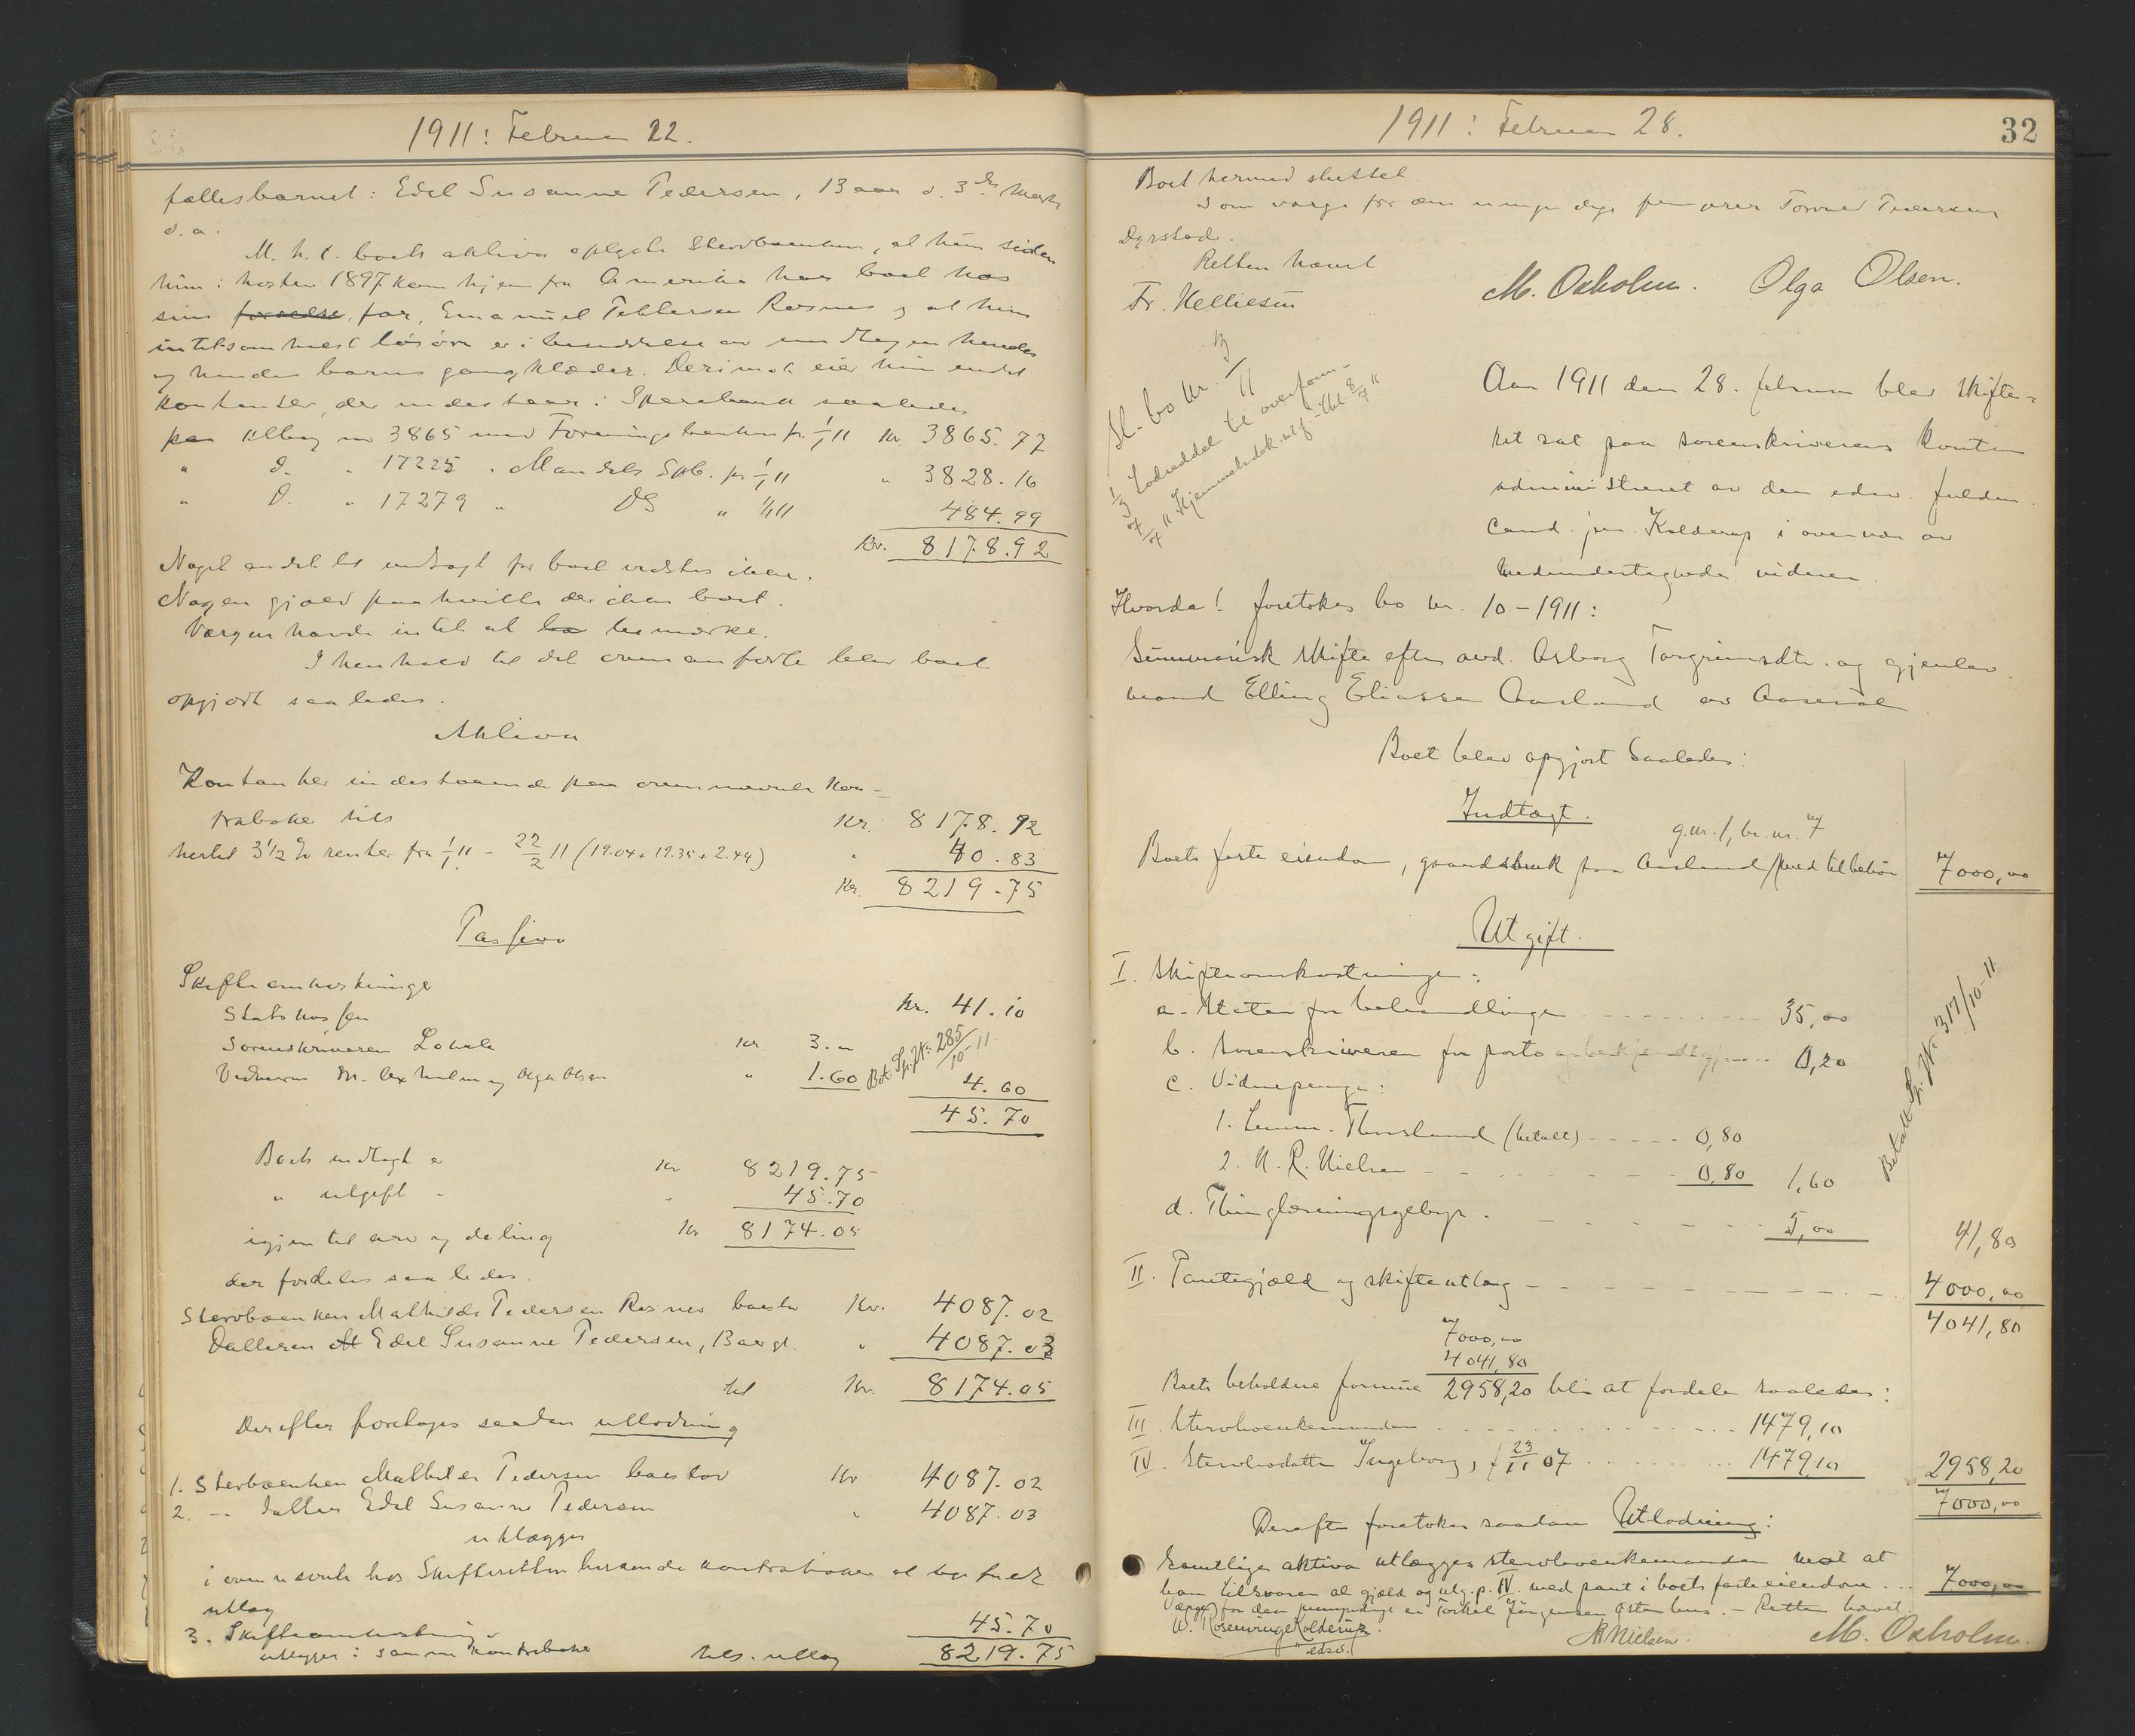 1911: Februar 22.
fællesbarnet: Edel Susanne Pedersen, 13 aar d. 3die Marts
d. a.
M. h. t. boets aktiva oplyste Stervboenken, at hun siden
hun i høsten 1897 kom hjem fra Amerika har boet hos
sin forældre far, Emanuel Rosnes og at hun
intetsomhelst løsøre er i besiddelse av undtagen hendes
og hendes barns gangklæder. Derimot eier hun endel
kontanter, der indestaar i Sparebank saaledes
paa no 3865 med Foreningsbanken pr 1/1 11 Kr. 3865.77
" d. " 17225 " Mandals Spb. pr 1/1 11 " 3828.16
" d. " 17279 " DS " 1/1 11 484.99
Kr. 8178.92
Noget andet til indtægt for boet vidstes ikke.
Nogen gjæld paahvilte der ikke boet.
Værgen havde intet at be bemærke.
I henhold til det ovenanførte blev boet
opgjort saaledes.
Aktiva
Kontanter indestaaende paa ovennævnte kon-
trabøker tils Kr. 8178.92
hertil 3 1/2 % renter fra 1/1 11 - 22/2 11 (19.04 + 19.35 + 2.44) " 40.83
Kr. 8219.75
Passiva
Skifteomkostninger
Statskassen Kr. 41.10
Sorenskriveren Lokale Kr. 3.00
Vidnerne M. Oxholm og Olga Olsen " 1.60 4.60
Bet. Sp. Nr. 285/10-11.
45.70
Boets indtægt er Kr 8219.75
" utgift " " 45.70
igjen til arv og deling Kr 8174.05
der fordeles saaledes.
Stervboenken Mathilde Pedersen Rosnes boeslov Kr. 4087.02
Datteren Edel Susanne Pedersen, " 4087.03
til Kr. 8174.05
Derefter foretages saadan utlodning
1. Stervboenken Mathilde Pedersen boeslov Kr 4087.02
2. — datter Edel Susanne Pedersen " 4087.03
utlægges
i ovennævnte hos Skifteretten beroende kontrabøker
utlæg
3. Skifteomkostninger 45.70
utlægges i samme kontrabøker tils. utlæg 8219.75
1911: Februar 28.
32
Boet hermed sluttet.
Som værge for den umyndige Pedersen
Dyrstad.
Retten hævet
Fr. Helliesen M. Oxholm. Olga Olsen.
Sl. bo nr. 13/11
Lodseddel til overform-
Hjemmelsdok. utf.
Aar 1911 den 28. februar blev skifte-
ret sat paa sorenskriverens kontor
administreret av den edsv. fuldm.
cand. jur. Kolderup i overvær av
medundertegnede vidner.
Hvorda! foretokes bo nr. 10-1911:
Summarisk skifte efter avd. Asborg Torgrimsdtr. og gjenlev.
mand Elling Eliassen Aasland av Aaseral
Boet blev opgjort saaledes:
Indtægt.
g.nr. 1, br. nr. 7
Boets faste eiendom, gaardsbruk paa Aasland med tilbehør 7000,00
Utgift.
I. Skifteomkostninger:
a. Staten for behandlingen 35,00
b. Sorenskriveren for porto 0,20
c. Vidnepenge:
1. Lensm. Thorsland (betalt) 0,80
2. N. R. Nielsen 0,80 1,60
d. Thinglæsningsgebyr 5,00 41,80
Betalt Sp. Nr. 317/10-11
II. Pantegjæld og skifteutlæg 4000,00
4041,80
7000,00
4041,80
Boets beholdne formue 2958,20 blir at fordele saaledes:
III. Stervboenkemanden 1479,10
IV. Stervbodatter Ingeborg, f 23/11 07 1479,10 2958,20
7000,00
Derefter foretokes saadan Utlodning:
Samtlige aktiva utlægges stervboenkemanden mot at
han tilsvarer al gjæld og utg. p. IV. med pant i boets faste eiendom 7000,00
Værge for den umyndige er Torkel Jørgensen Østenhus. — Retten hævet.
W. Rosenvinge Kolderup. NRNielsen. M. Oxholm.
edsv.